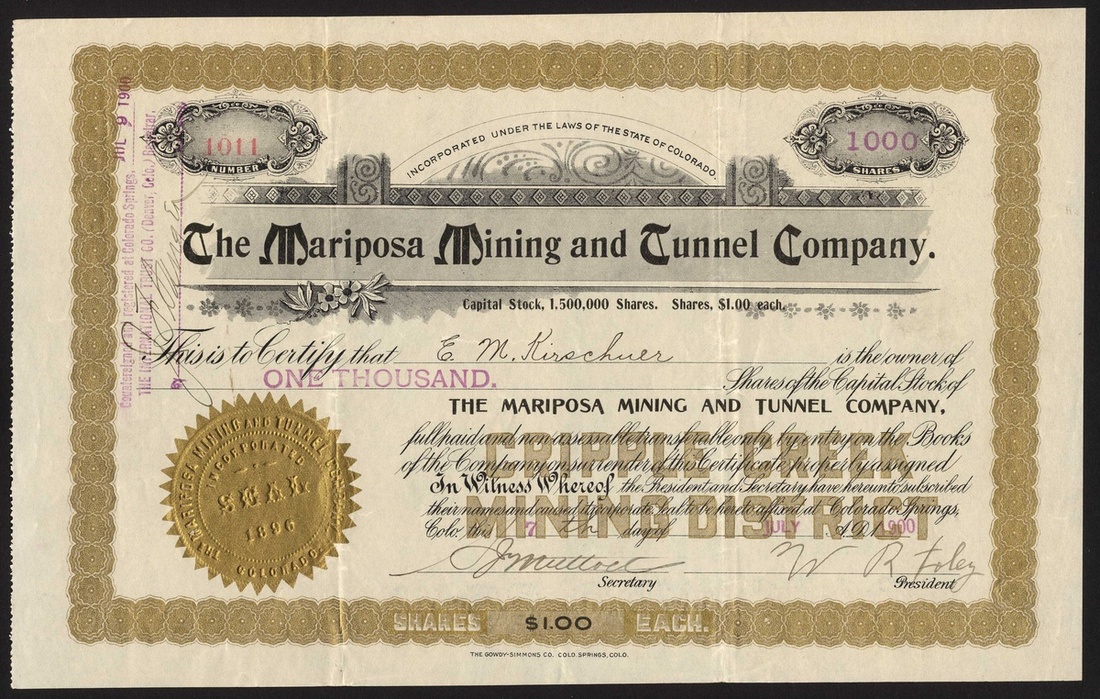 1011
NUMBER
1000
SHARES
INCORPORATED UNDER THE LAWS OF THE STATE OF COLORADO.
The Mariposa Mining and Tunnel Company.
Capital Stock, 1,500,000 Shares. Shares, $1.00 each.
This is to Certify that E. M. Kirschner is the owner of
ONE THOUSAND. Shares of the Capital Stock of
THE MARIPOSA MINING AND TUNNEL COMPANY,
full paid and non-assessable transferable only by entry on the Books
of the Company on surrender of this Certificate properly assigned
In Witness Whereof the President and Secretary have hereunto subscribed
their names and caused its corporate seal to be hereto affixed at Colorado Springs,
Colo. this 7 th day of JULY A.D. 1900
CRIPPLE CREEK
MINING DISTRICT
W R Foley
Secretary President
SHARES $1.00 EACH.
THE GOWDY-SIMMONS CO. COLO. SPRINGS, COLO.
THE MARIPOSA MINING AND TUNNEL COMPANY
INCORPORATED
SEAL
1896
COLORADO
JUL 9 1900
Countersigned and registered at Colorado Springs,
THE INTERNATIONAL TRUST CO. (Denver, Colo.) Registrar.
By